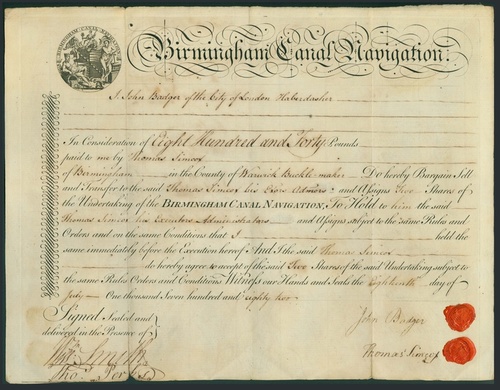 Birmingham Canal Navigation.
I John Badger of the City of London Haberdasher
In Consideration of Eight Hundred and Forty Pounds
paid to me by Thomas Simcox
of Birmingham in the County of Warwick Buckle-maker Do hereby Bargain Sell
and Transfer to the said Thomas Simcox his Exors Admors and Assigns Two Shares of
the Undertaking of the BIRMINGHAM CANAL NAVIGATION, To Hold to him the said
Thomas Simcox his Executors Administrators and Assigns subject to the same Rules and
Orders and on the same Conditions that I held the
same immediately before the Execution hereof And I the said Thomas Simcox
do hereby agree to accept of the said Two Shares of the said Undertaking subject to
the same Rules Orders and Conditions Witness our Hands and Seals the Eighteenth day of
July One thousand Seven hundred and eighty two
Signed Sealed and
delivered in the Presence of
John Badger
Thomas Simcox